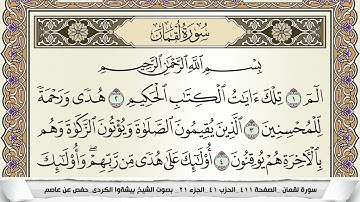 سُورَةُ لُقْمَانَ
بِسْمِ ٱللَّهِ ٱلرَّحْمَٰنِ ٱلرَّحِيمِ
الٓمٓ ١ تِلْكَ ءَايَٰتُ ٱلْكِتَٰبِ ٱلْحَكِيمِ ٢ هُدًى وَرَحْمَةً
لِّلْمُحْسِنِينَ ٣ ٱلَّذِينَ يُقِيمُونَ ٱلصَّلَوٰةَ وَيُؤْتُونَ ٱلزَّكَوٰةَ وَهُم
بِٱلْأَخِرَةِ هُمْ يُوقِنُونَ ٤ أُو۟لَٰٓئِكَ عَلَىٰ هُدًى مِّن رَّبِّهِمْ ۖ وَأُو۟لَٰٓئِكَ
سورة لقمان . الصفحة ٤١١ . الحزب ٤١ . الجزء ٢١ . بصوت الشيخ بيشةوا الكردي . حفص عن عاصم